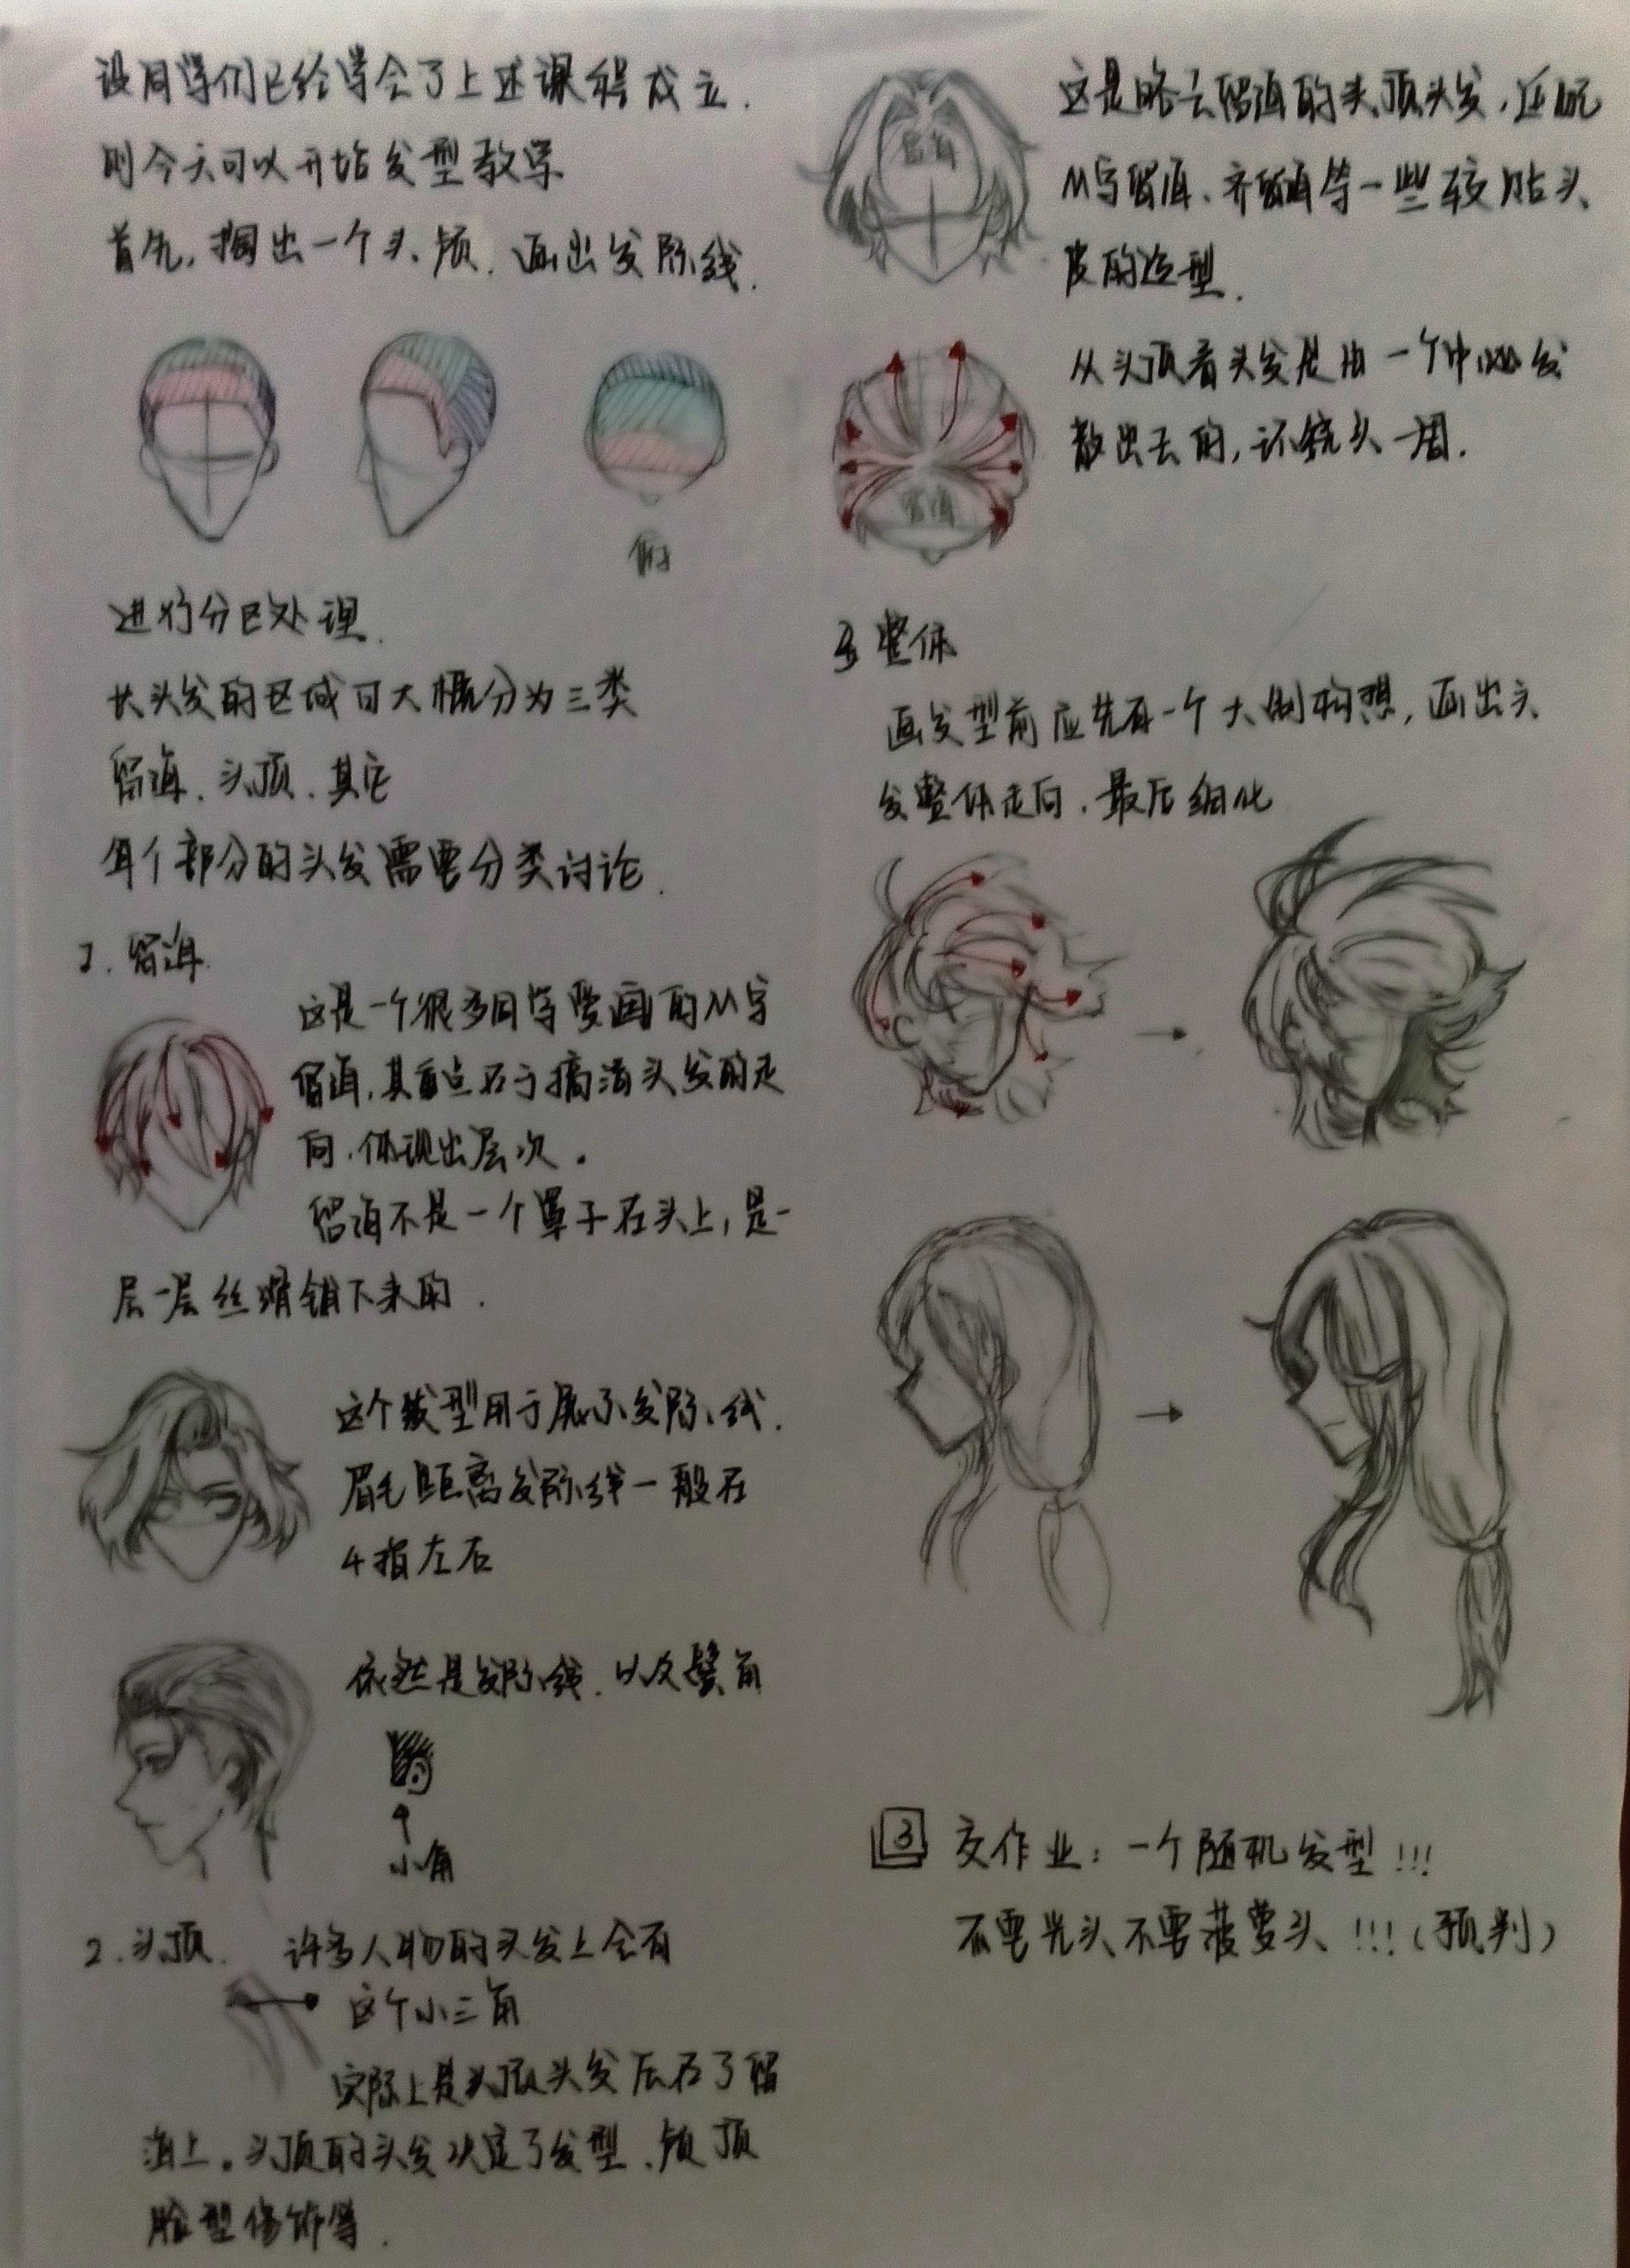 设同学们已经学会了上述课程成立.
则今天可以开始发型教学
首先,掏出一个头颅.画出发际线.
俯
进行分区处理.
长头发的区域可大概分为三类
留海.头顶.其它
每个部分的头发需要分类讨论.
1.留海.
这是一个很多同学爱画的M字
留海,其重点在于搞清头发的走
向.体现出层次。
留海不是一个罩子在头上,是一
层一层丝滑铺下来的.
这个发型用于展示发际线.
眉毛距离发际线一般在
4指左右
依然是发际线.以及鬓角
小角
2.头顶. 许多人物的头发上会有
这个小三角
实际上是头顶头发压在了留
海上。头顶的头发决定了发型.颅顶
脸型修饰等.
留海
这是略去留海的头顶头发,还原
M字留海.齐留海等一些较贴头
皮的造型.
从头顶看头发是由一个中心发
散出去的,环绕头一周.
留海
3 整体
画发型前应先有一个大制构想,画出头
发整体走向.最后细化
3 交作业:一个随机发型!!!
不要光头不要菠萝头!!!(预判)